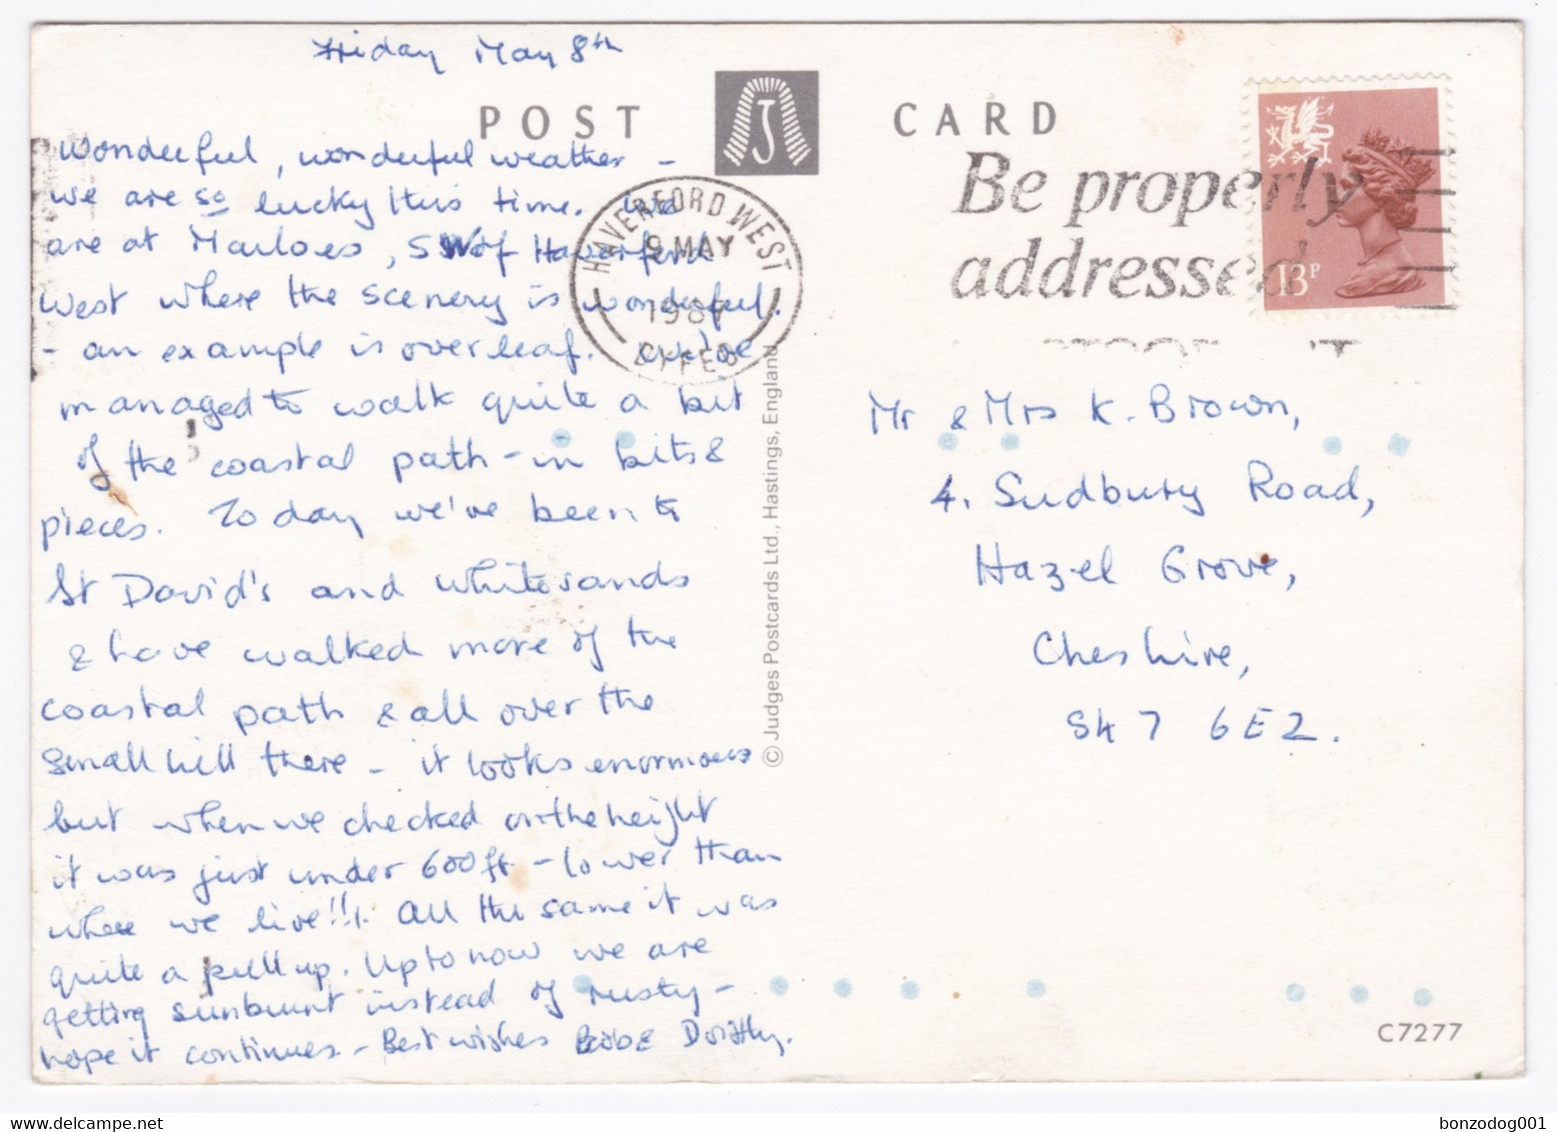 Friday May 8th
POST CARD
J
Wonderful, wonderful weather -
we are so lucky this time. We
are at Marloes, SW of Haverford
West where the scenery is wonderful.
- an example is overleaf. We've
managed to walk quite a bit
of the coastal path - in bits &
pieces. Today we've been to
St David's and Whitesands
& have walked more of the
coastal path & all over the
small hill there - it looks enormous
but when we checked on the height
it was just under 600 ft - lower than
where we live!!!. All the same it was
quite a pull up. Up to now we are
getting sunburnt instead of rusty -
hope it continues - Best wishes & Dorothy.
HAVERFORD WEST
9 MAY
1987
DYFED
Be properly
addressed
13P
© Judges Postcards Ltd., Hastings, England
Mr & Mrs K. Brown,
4, Sudbury Road,
Hazel Grove,
Cheshire,
SK7 6EZ.
C7277
bonzodog001